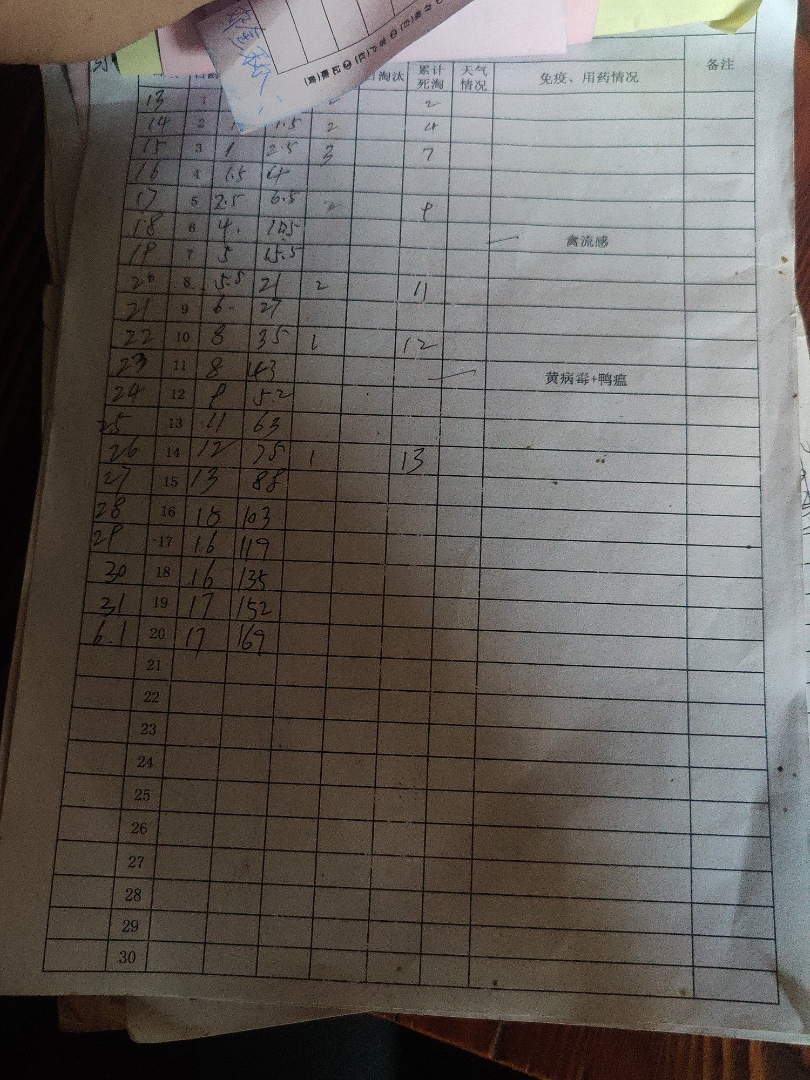 日淘汰 累计死淘 天气情况 免疫、用药情况 备注
13 1 2 2
14 2 1.5 2 4
15 3 1 2.5 3 7
16 4 1.5 4
17 5 2.5 6.5 2 9
18 6 4. 10.5 禽流感
19 7 5 15.5
20 8 5.5 21 2 11
21 9 6. 27
22 10 8 35 1 12
23 11 8 43 黄病毒+鸭瘟
24 12 9 52
25 13 11 63
26 14 12 75 1 13
27 15 13 88
28 16 15 103
29 17 16 119
30 18 16 135
31 19 17 152
6.1 20 17 169
21
22
23
24
25
26
27
28
29
30